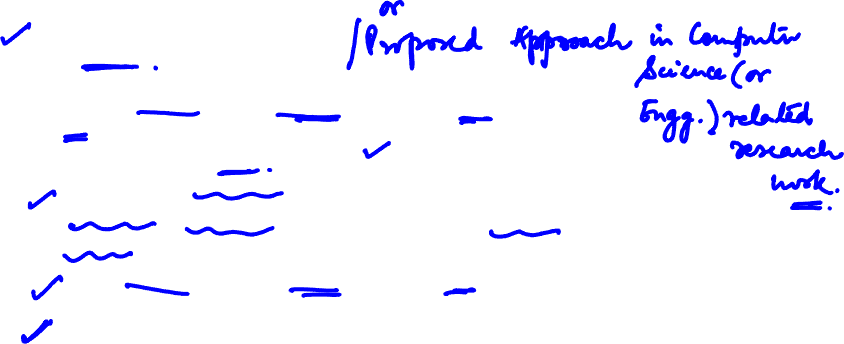 or
/Proposed Approach in Computer
Science (or
Engg.) related
research
work.